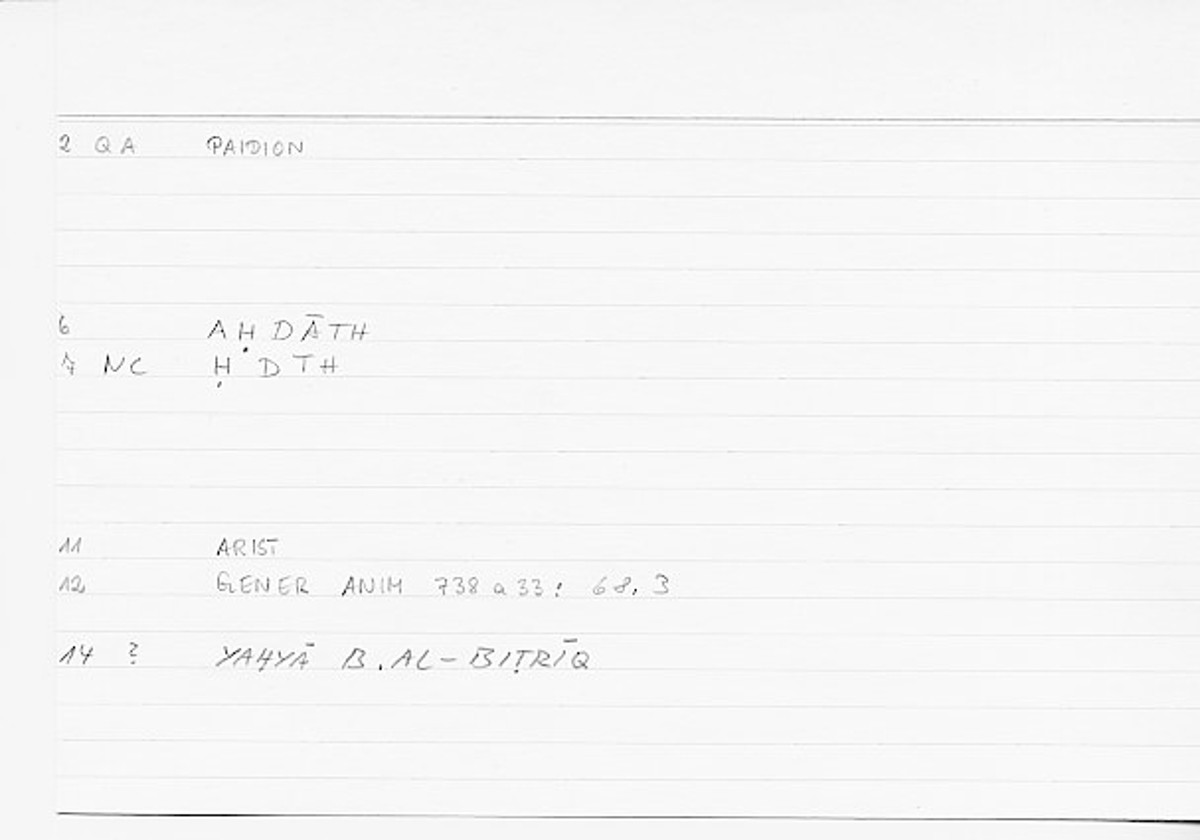 2 QA PAIDION
6 AḤDĀTH
7 NC ḤDTH
11 ARIST
12 GENER ANIM 738 a 33: 68,3
14 ? YAḤYĀ B. AL-BIṬRĪQ